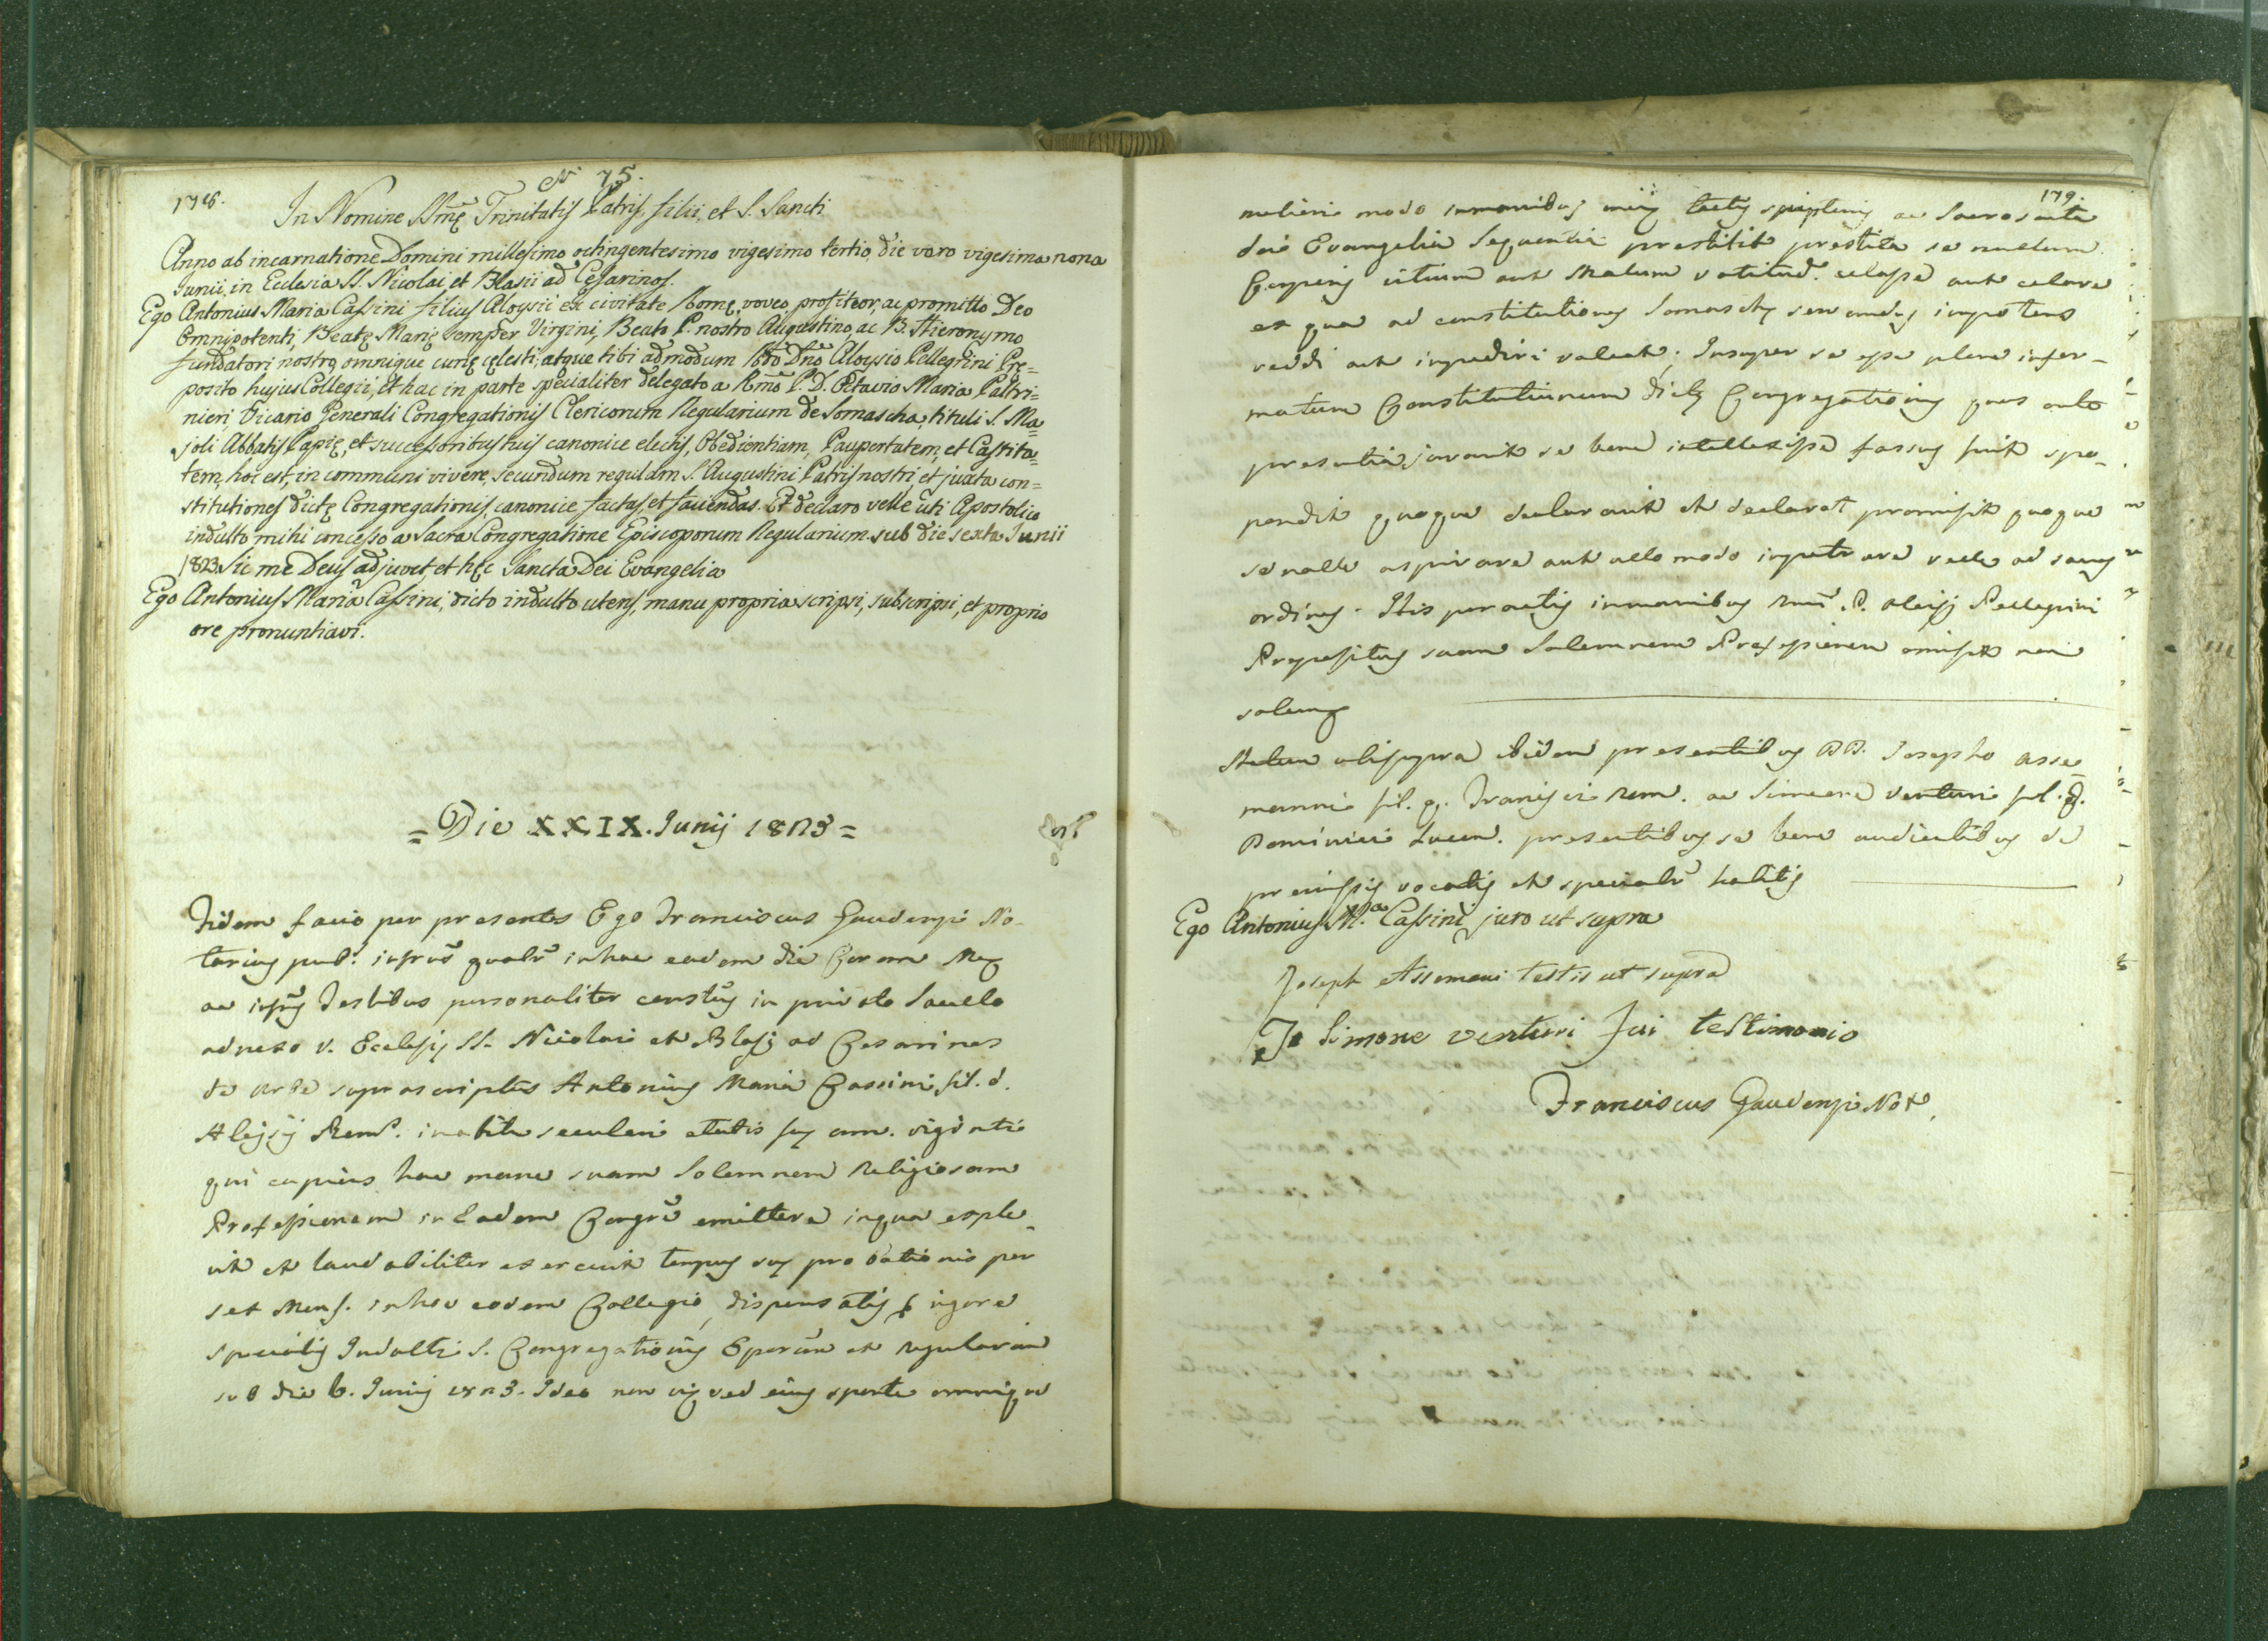 N 75.
178.
In Nomine SSmę Trinitatis Patris, filii, et S. Sancti
Anno ab incarnatione Domini millesimo octingentesimo vigesimo tertio, die varo vigesima nona
Junii, in Eclesia SS. Nicolai et Blasii ad Cesarinos.
Ego Antonius Maria Cassini filius Aloysii ex civitate Romę, voveo, profiteor, ac promitto Deo
Omnipotenti, Beatę Marię semper Virgini, Beato P. nostro Augustino, ac B. Hieronymo
fundatori nostro, omnique curię cęlesti, atque tibi admodum Rdo Dno Aloysio Pellegrini Pre=
posito hujus Collegii, et hac in parte specialiter delegato a Rmo P. D. Octavio Maria Paltri=
nieri Vicario Generali Congregationis Clericorum Regularium de Somascha, tituli S. Ma=
joli Abbatis Papię, et successoribus tuis canonice electis, Obedientiam, Paupertatem, et Castita=
tem, hoc est, in communi vivere, secundum regulam S. Augustini Patris nostri, et juxta con=
stitutiones dictę Congregationis, canonice factas, et faciendas. Et declaro velle uti Apostolico
indulto mihi concesso a Sacra Congregatione Episcoporum Regularium sub die sexta Junii
1823. Sic me Deus adjuvet, et hęc Sancta Dei Evangelia
Ego Antonius Maria Cassini, dicto indulto utens, manu propria scripsi, subscripsi, et proprio
ore pronuntiavi.
= Die XXIX. Junij 1823 =
Fidem facio per presentes Ego Franciscus Gaudenzi No-
tarius pub. infrus qualr in hac eadem die Coram Me
ac infris Testibus personaliter constus in privato Sacello
adnexo V. Ecclesię SS. Nicolai et Blasij ad Cesarinos
de Urbe suprascriptus Antonius Maria Cassini fil. d.
Aloysij Rom. in abitu seculari etatis suę ann. viginti
qui cupiens hac mane suam Solemnem Religiosam
Professionem in Eadem Congre emittere in qua exple-
vit et laudabiliter exercuit tempus suę probationis per
sex Mens. in hoc eodem Collegio, dispensatis vigore
specialis Indulti S. Congregationis Eporum et Regularium
sub die 6. Junij 1823. Ideo non vi sed eius sponte omnique
179.
meliori modo in manibus meis tactis scripturis ac Sacrosanta
dei Evangelia Sequentia prestitit prestita se nullum
Corporis vitium aut Malum celasse aut celare
ex quo ad constitutiones Somaschę servandas impotens
reddi aut impediri valeat; Insuper se esse plene infor-
matum Constitutionum dictę Congregationis quas ante
presentia juravit se bene intellexisse fassus fuit spo-
pondit quoque declaravit et declarat promisit quoque
se nolle aspirare aut ullo modo impetrare velle ad sacros
ordines. His peractis in manibus Rmi P. Aloisj Pellegrini
Prepositus suam Solemnem Professionem emisit non
solum
Actum ubi supra ibidem presentibus DD. Josepho Asse-
manni fil. q. Francisci Rom. ac Simeone Venturi fil. q.
Dominici Lucen. presentibus se bene audientibus de
premissis vocatis et specialr habitis
Ego Antonius M.a Cassini juro ut supra
Joseph Assemani testis ut supra
Io Simone Venturi fui testimonio
Franciscus Gaudenzi Not.